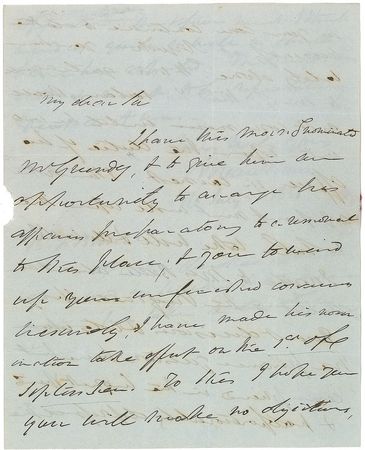 My dear Sir
I have this morng nominated
Mr Grundy, & to give him an
opportunity to arrange his
affairs preparatory to a removal
to this place, & you to wind
up your unfinished concerns
leisurely, I have made his nom
ination take effect on the 1st of
September. To this I hope you
you will make no objections,